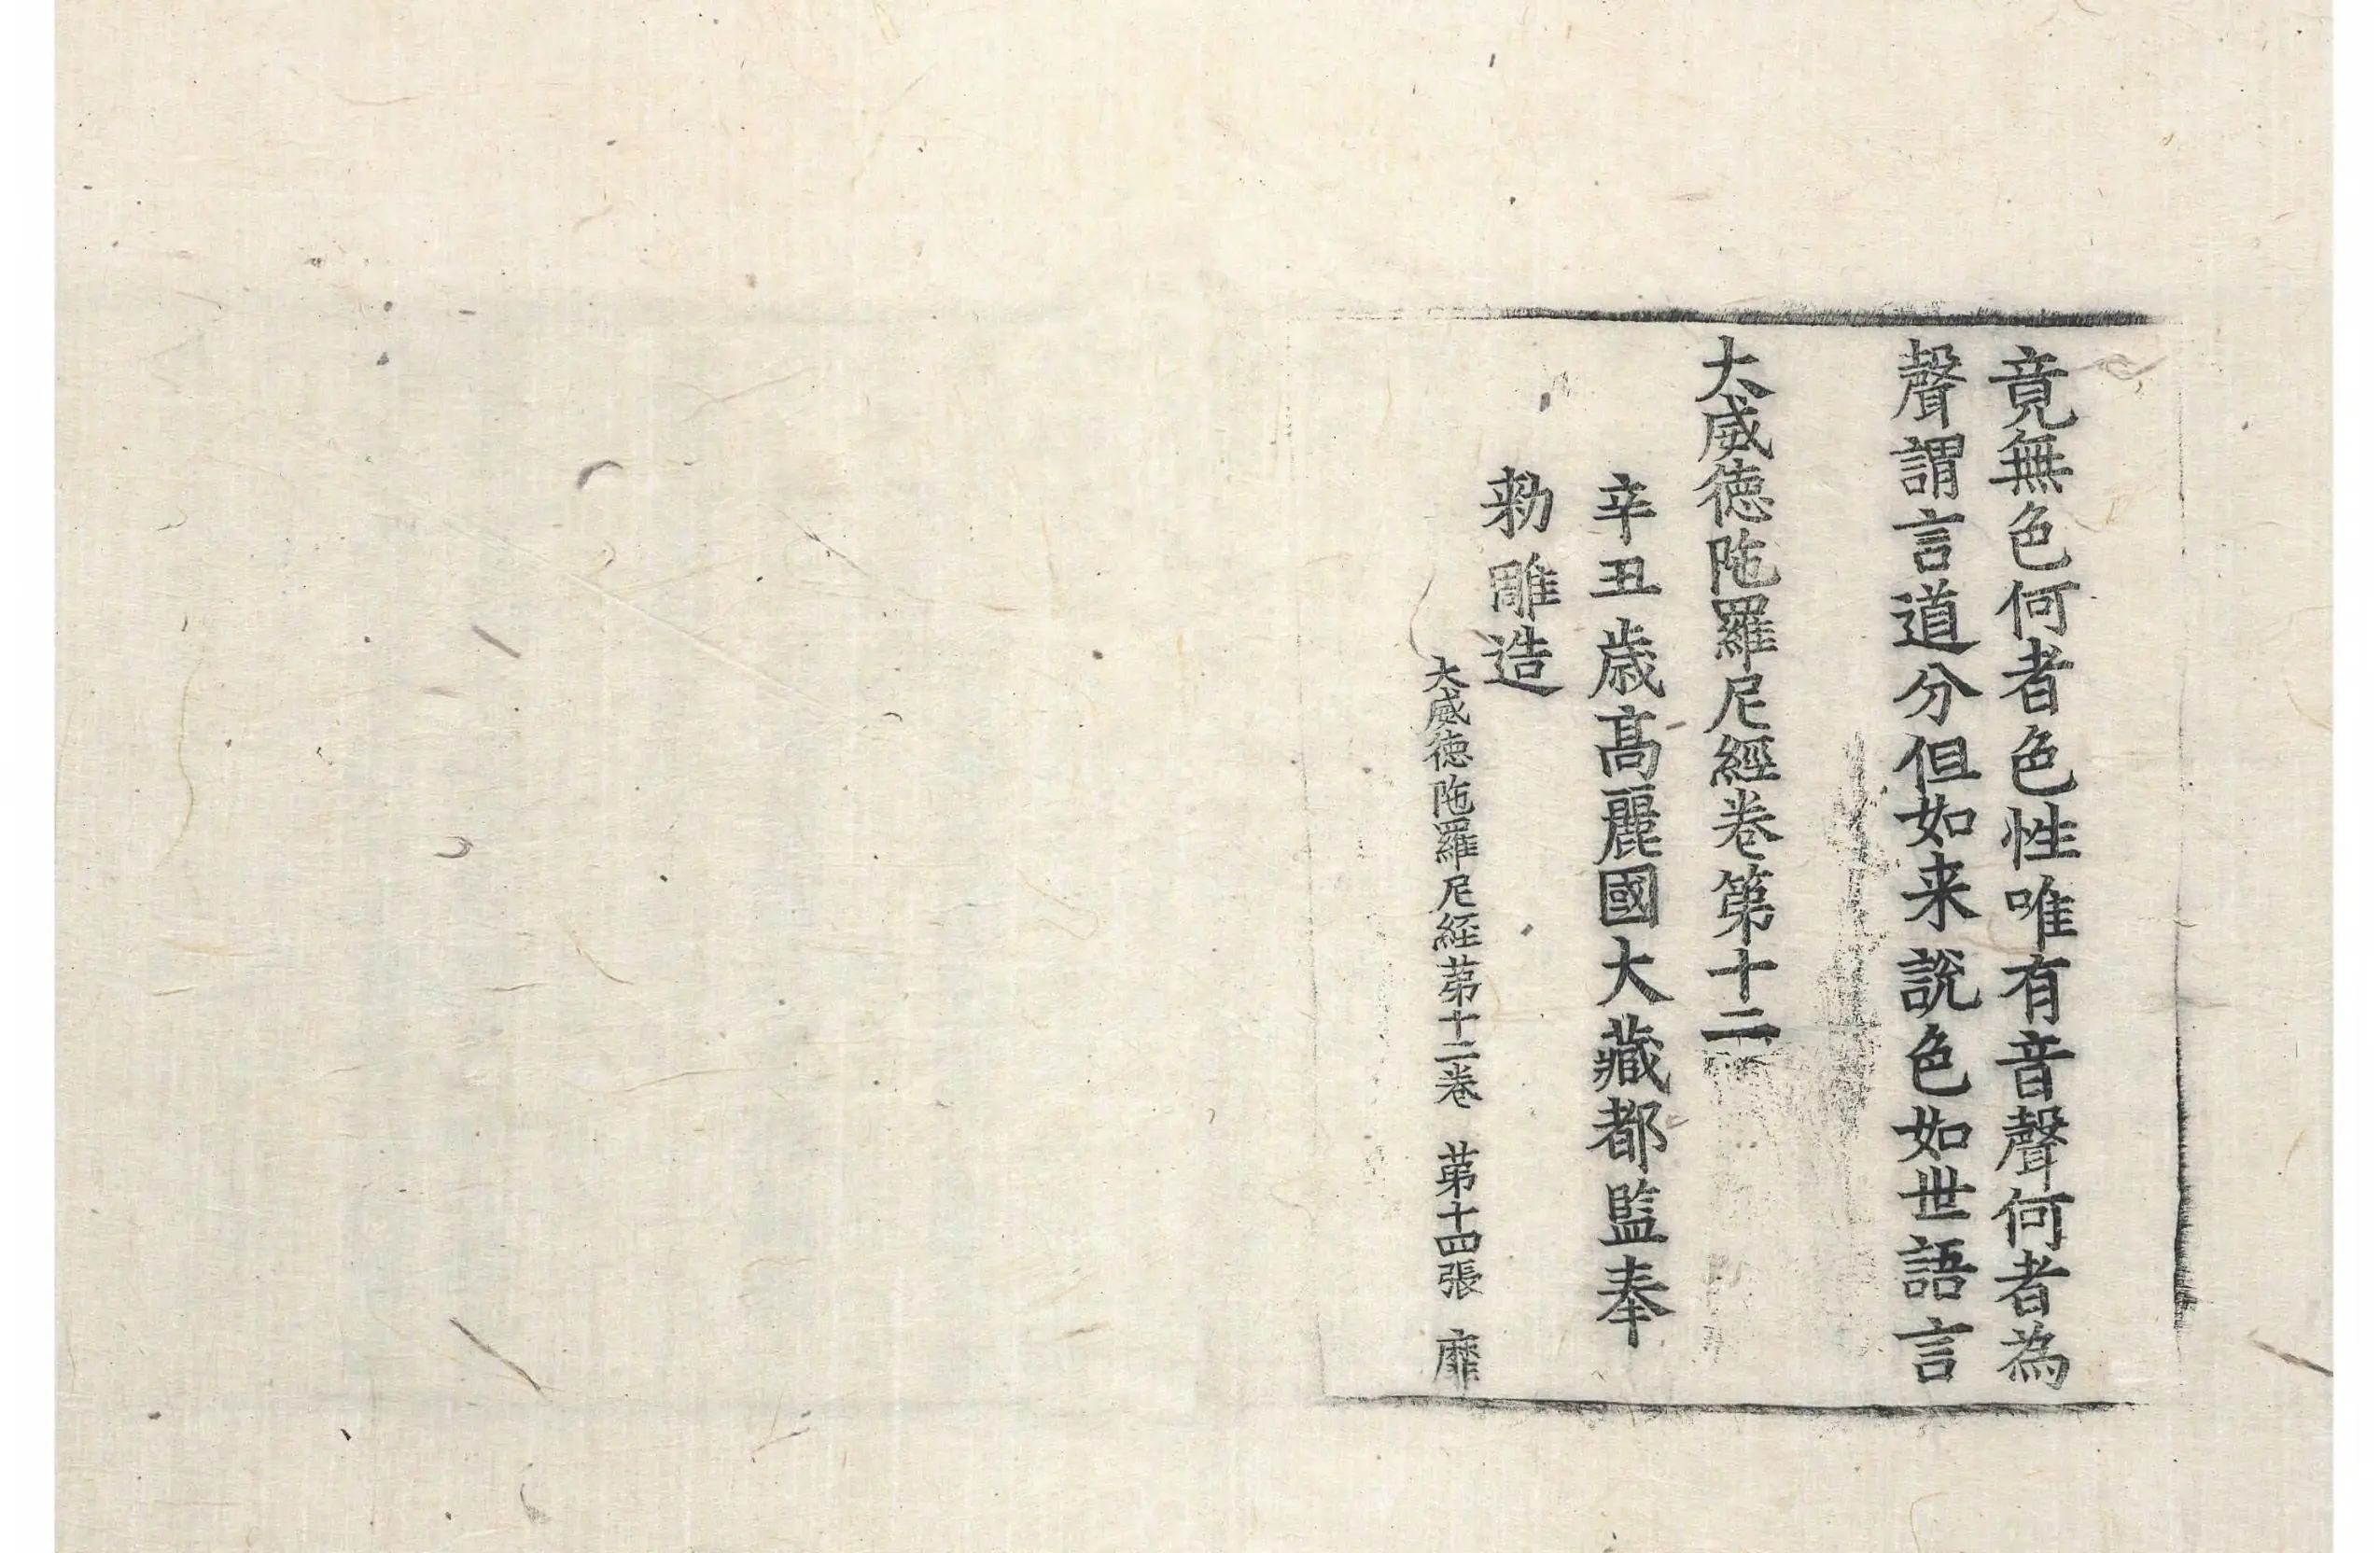 竟無色何者色性唯有音聲何者為
聲謂言道分但如来說色如世語言
大威德陁羅尼經卷第十二
辛丑歳高麗國大藏都監奉
勑雕造
大威徳陁羅尼経苐十二卷 苐十四張 靡